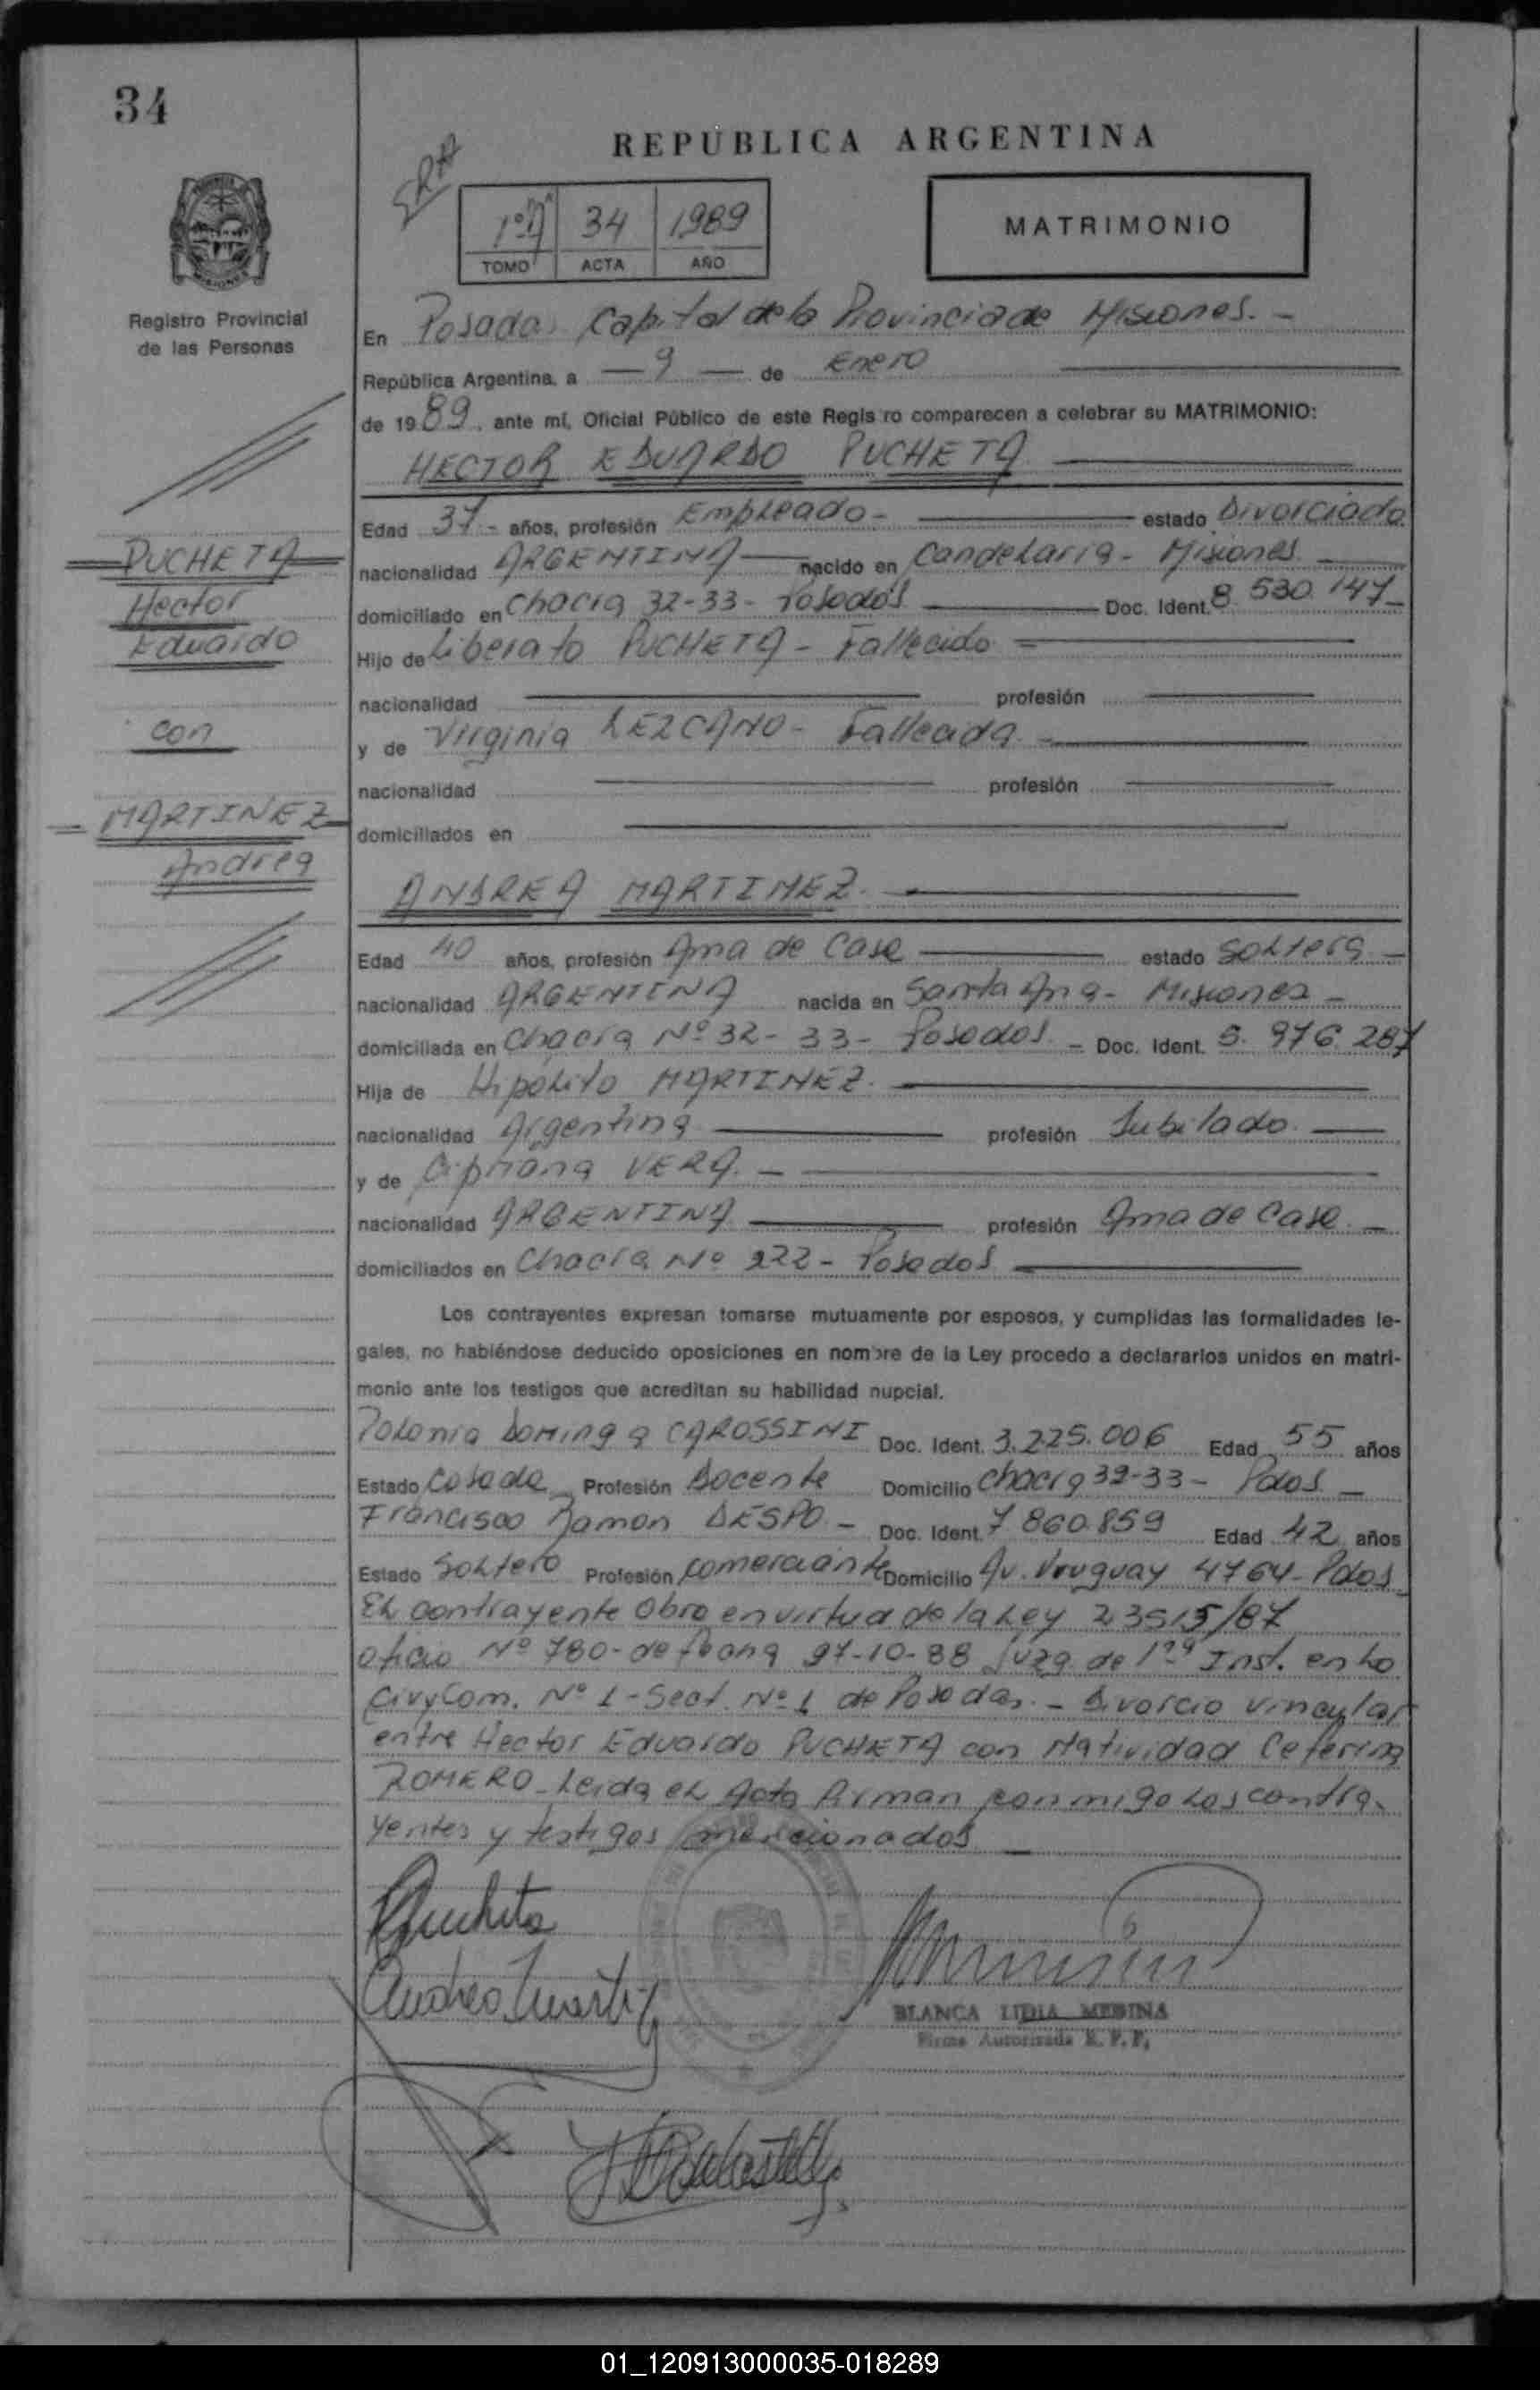 34
REPUBLICA ARGENTINA
1º A 34 1989
TOMO ACTA AÑO
MATRIMONIO
Registro Provincial
de las Personas
En Posadas Capital de la Provincia de Misiones. -
República Argentina, a - 9 - de Enero
de 1989, ante mí, Oficial Público de este Regis ro comparecen a celebrar su MATRIMONIO:
HECTOR EDUARDO PUCHETA
Edad 37 - años, profesión Empleado - estado Divorciado
nacionalidad ARGENTINA nacido en Candelaria - Misiones
domiciliado en Chacra 32-33 - Posadas Doc. Ident. 8.530.147 -
Hijo de Liberato PUCHETA - Fallecido
nacionalidad profesión
y de Virginia LEZCANO - Fallecida
nacionalidad profesión
domiciliados en
PUCHETA
Hector
Eduardo
con
MARTINEZ
Andrea
ANDREA MARTINEZ
Edad 40 años, profesión Ama de Casa estado Soltera -
nacionalidad ARGENTINA nacida en Santa Ana - Misiones -
domiciliada en Chacra Nº 32 - 33 - Posadas. - Doc. Ident. 5.976.287
Hija de Hipólito MARTINEZ.
nacionalidad Argentina profesión Jubilado.
y de Cipriana VERA. -
nacionalidad ARGENTINA profesión Ama de Casa. -
domiciliados en Chacra Nº 222 - Posadas
Los contrayentes expresan tomarse mutuamente por esposos, y cumplidas las formalidades le-
gales, no habiéndose deducido oposiciones en nombre de la Ley procedo a declararlos unidos en matri-
monio ante los testigos que acreditan su habilidad nupcial.
Polonia Dominga CAROSSINI Doc. Ident. 3.225.006 Edad 55 años
Estado Casada Profesión Docente Domicilio Chacra 32-33 - Pdas. -
Francisco Ramon DESPO - Doc. Ident. 7.860.859 Edad 42 años
Estado Soltero Profesión Comerciante Domicilio Av. Uruguay 4764 - Pdas.
El contrayente Obra en virtud de la Ley 23515/87
oficio Nº 780 - de fecha 27-10-88 Juzg. de 1ra Inst. en lo
Civ y Com. Nº 1 - Sect. Nº 1 de Posadas. - Divorcio vincular
entre Hector Eduardo PUCHETA con Natividad Ceferina
ROMERO - Leida el Acta firman conmigo los contra-
yentes y testigos mencionados
Pucheta
Andrea Martinez
BLANCA LIDIA MEDINA
Firma Autorizada R. P. P.
01_120913000035-018289